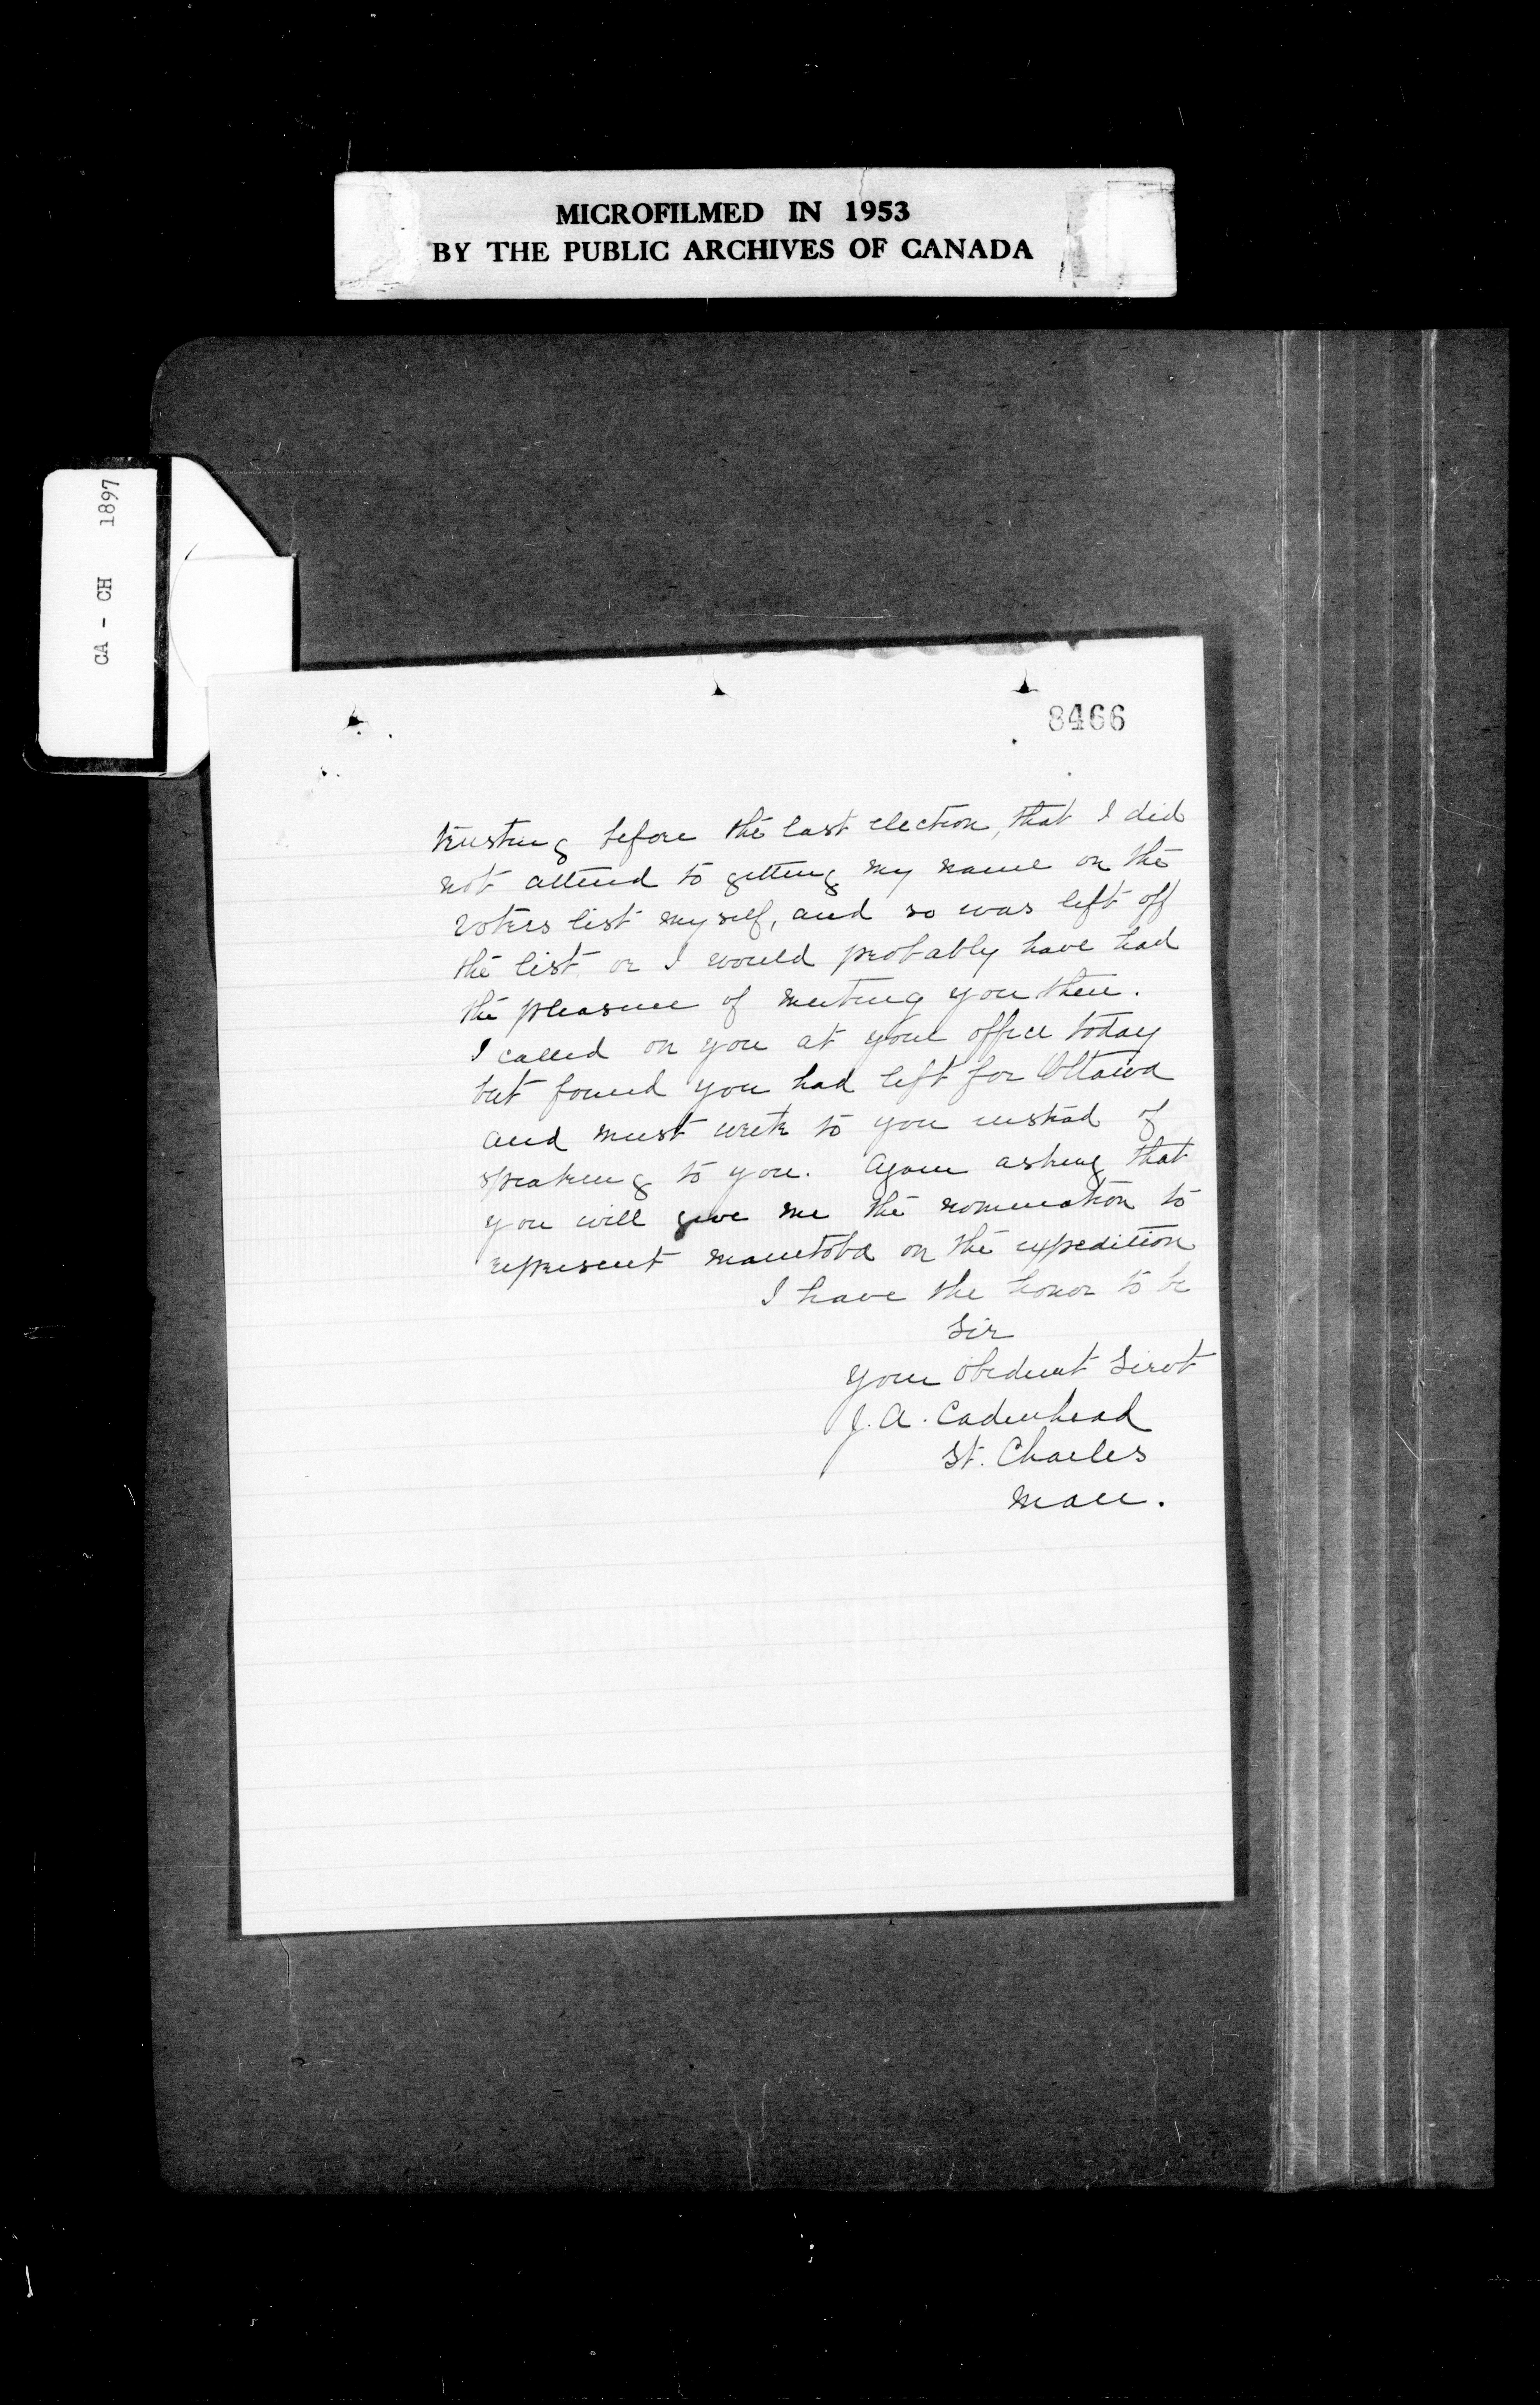 MICROFILMED IN 1953
BY THE PUBLIC ARCHIVES OF CANADA
CA - CH 1897
8466
trusting before the last election, that I did
not attend to getting my name on the
voters list myself, and so was left off
the list or I would probably have had
the pleasure of meeting you then.
I called on you at your office today
but found you had left for Ottawa
and must write to you instead of
speaking to you. Again asking that
you will give me the nomination to
represent Manitoba on the expedition
I have the honor to be
Sir
Your obedient Servt
J. A. Cadenhead
St. Charles
Man.